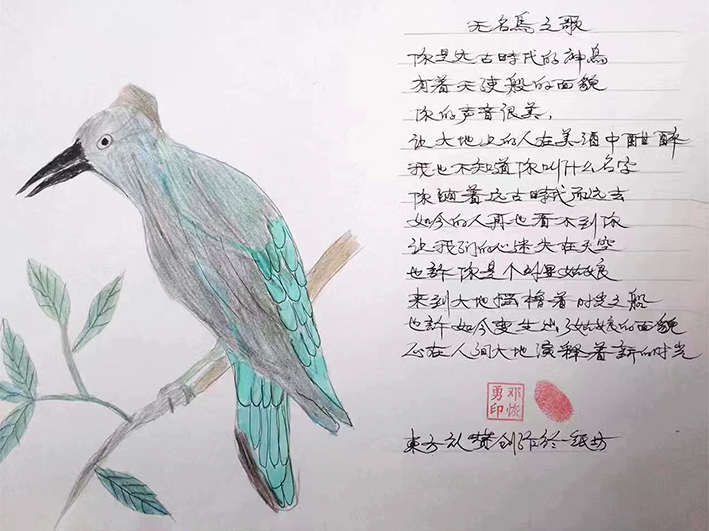 无名鳥之歌
你是远古時代的神鳥
有着天使般的面貌
你的声音很美,
让大地上的人在美酒中酣醉
我也不知道你叫什么名字
你随着远古時代而远去
如今的人再也看不到你
让我们的心迷失在天空
也許你是个姑娘
来到大地摇橹着时光之船
也許如今变生出姑娘的面貌
在人间大地演釋着新的时光
邓
勇印
東方礼赞创作於一纸坊